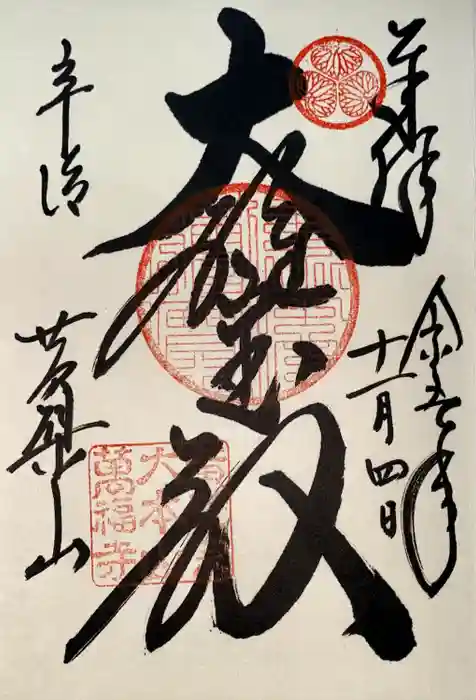 奉拝
令和五年
十一月四日
大雄宝殿
大本山
萬福寺
宇治
黄檗山